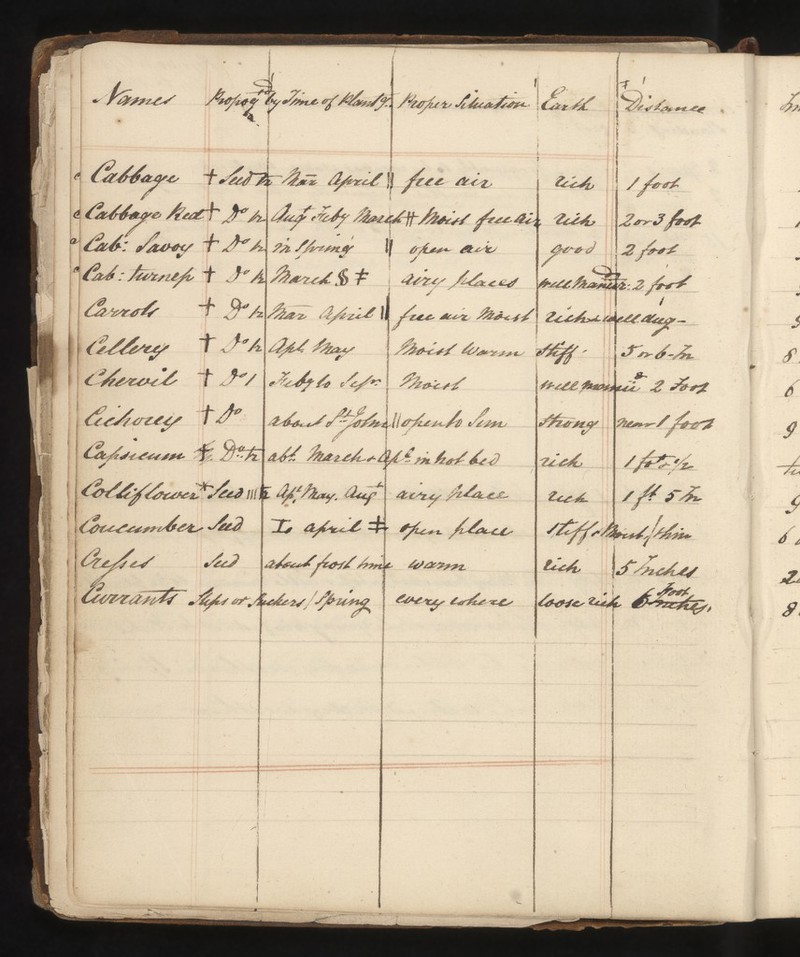 Names Propogd by Time of Plantg. Proper Situation Earth Distance
Cabbage † Seed Mar April || free air rich 1 foot
Cabbage Red † Do Augt Feby March || Moist free air rich 2 or 3 foot
Cab: Savoy † Do in Spring || open air good 2 foot
Cab: turnep † Do March airy places well Manur: 2 foot
Carrots † Do Mar April || free air Moist rich & well dug
Cellery † Do Apl May Moist Warm stiff 5 or 6 In
Chervil † Do 1 Feby to Sepr. Moist well 2 Foot
Cichorey † Do about St. Johns || open to Sun strong near 1 foot
Capsicum Do abt. March & Apl. in hot bed rich 1 fot & 1/2
Colliflower Seed Apl. May. Augt airy place rich 1 ft 5 In
Coucumber Seed april ‡ open place stiff & Moist / thin
Cresses Seed about frost time warm rich 5 Inches
Currants Slips or Suckers / Spring every where loose rich 6 Foot Inches.